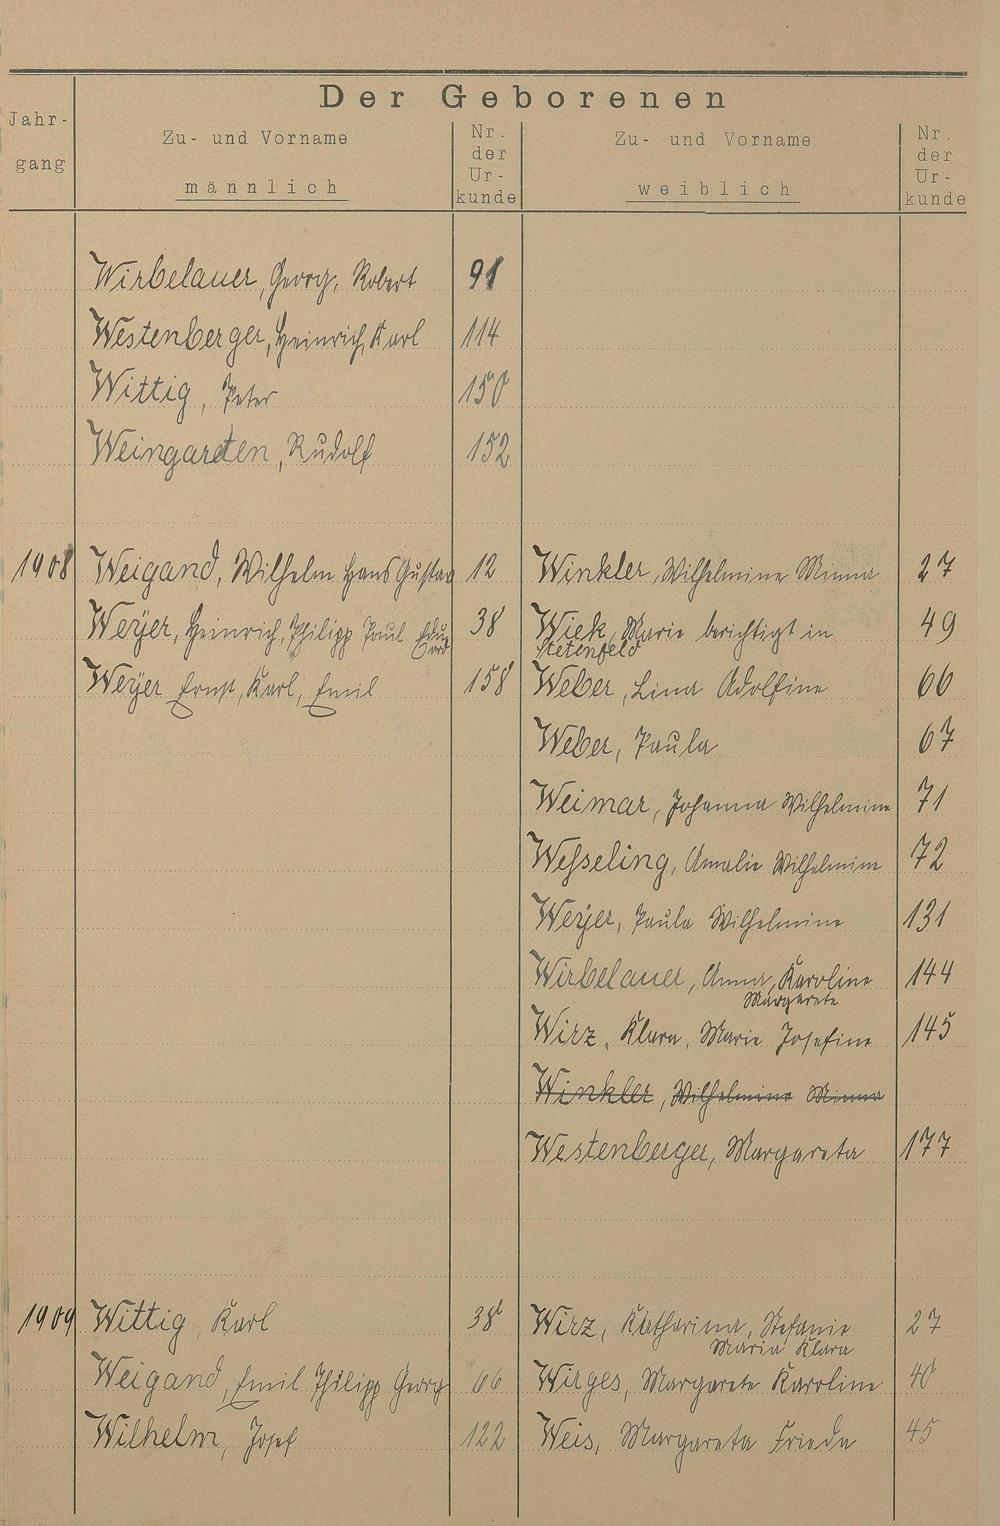 Der Geborenen
Jahr-
gang
Zu- und Vorname
männlich
Nr.
der
Ur-
kunde
Zu- und Vorname
weiblich
Nr.
der
Ur-
kunde
Wirbelauer, Georg, Robert 91
Westenberger, Heinrich, Karl 114
Wittig, Peter 150
Weingarten, Rudolf 152
1908 Weigand, Wilhelm Hans Gustav 12 Winkler, Wilhelmine Minna 27
Weyer, Heinrich, Philipp Paul Edu- 38 Wiek, Marie berichtigt in 49
ard Stetenfeld
Weyer Ernst, Karl, Emil 158 Weber, Lina Adolfine 66
Weber, Paula 67
Weimar, Johanna Wilhelmine 71
Weſseling, Amalie Wilhelmine 72
Weyer, Paula Wilhelmine 131
Wirbelauer, Anna, Karoline 144
Margarete
Wirz, Klara, Marie Josefine 145
Winkler, Wilhelmine Minna
Westenberger, Margareta 177
1909 Wittig, Karl 38 Wirz, Katharina, Stefanie 27
Maria Klara
Weigand, Emil Philipp Georg 66 Wirges, Margarete Karoline 40
Wilhelm, Josef 122 Weis, Margareta Frieda 45